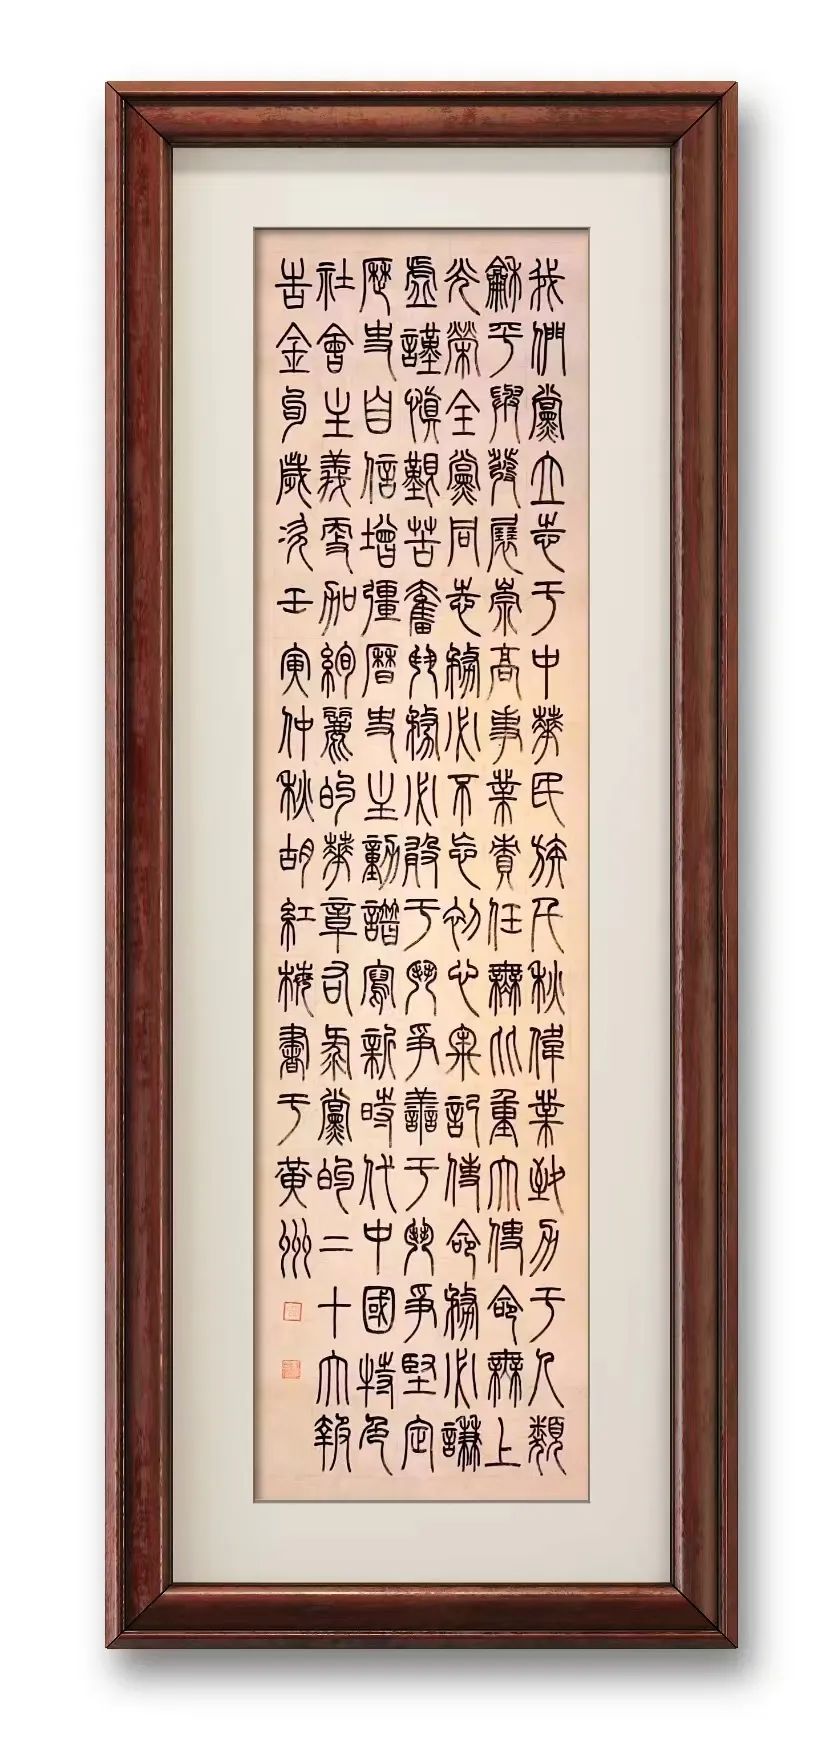 我們黨立志于中華民族千秋偉業致力于人類
龢平與發展崇高事業責任無比重大使命無上
光榮全黨同志務必不忘初心牢記使命務必謙
虛謹慎艱苦奮鬥務必敢于鬥爭善于鬥爭堅定
歷史自信增彊曆史主動譜寫新時代中國特色
社會主義更加絢麗的華章右彔黨的二十大報
告金句歲次壬寅仲秋胡紅梅書于黃州